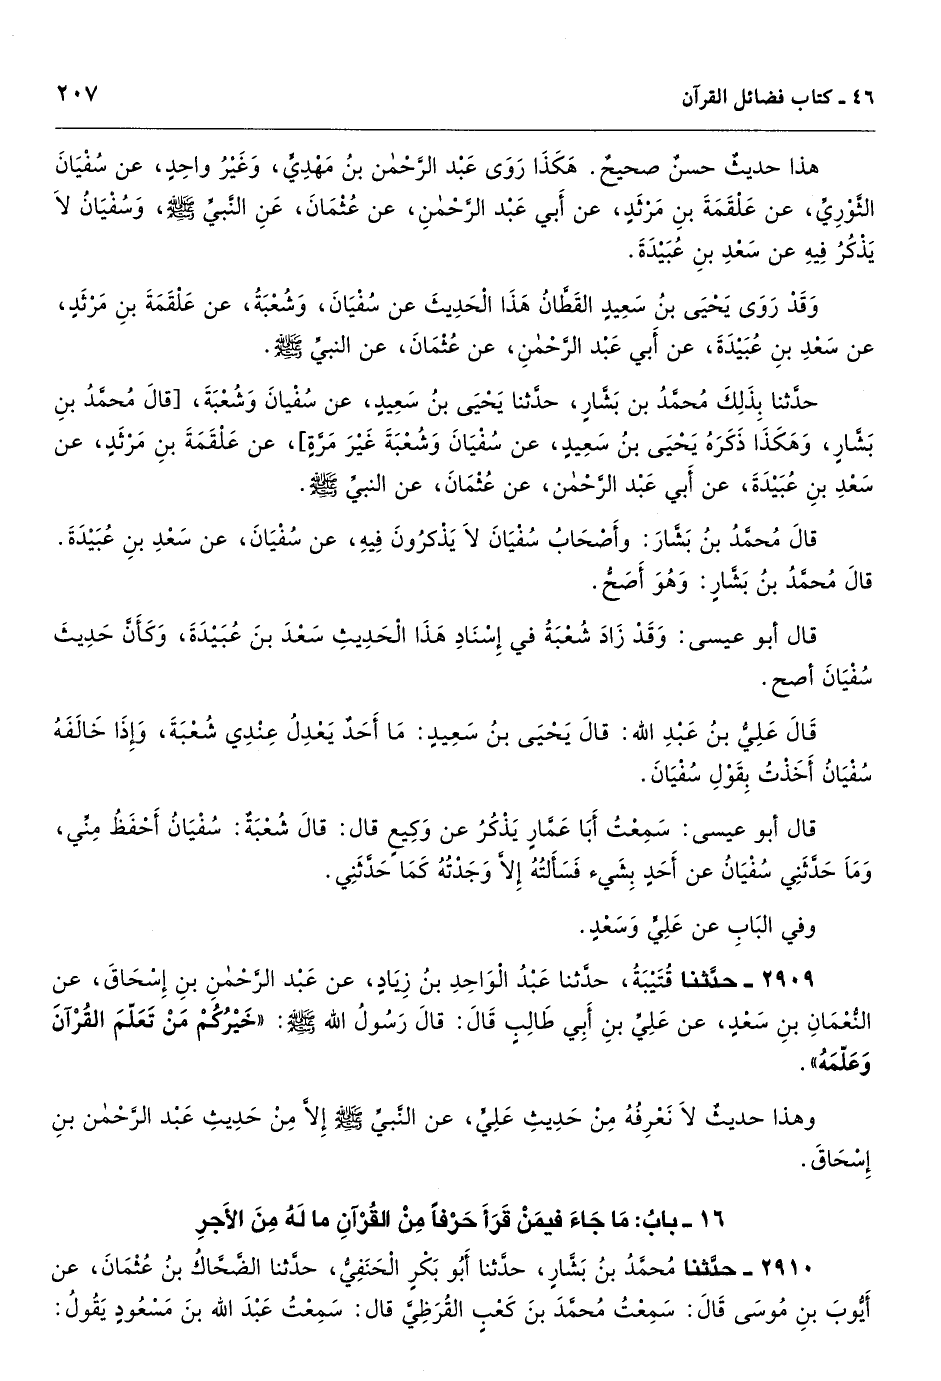 ٤٦ ـ كتاب فضائل القرآن
٢٠٧
هذا حديثٌ حسنٌ صحيحٌ. هَكَذَا رَوَى عَبْد الرَّحْمٰن بنُ مَهْدِيٍّ، وَغَيْرُ واحِدٍ، عن سُفْيَانَ
الثَّوْرِيِّ، عن عَلْقَمَةَ بنِ مَرْثَدٍ، عن أَبي عَبْد الرَّحْمٰنِ، عن عُثْمَانَ، عَنِ النَّبيِّ ﷺ، وَسُفْيَانُ لاَ
يَذْكُرُ فِيهِ عن سَعْدِ بنِ عُبَيْدَةَ.
وَقَدْ رَوَى يَحْيَى بنُ سَعِيدٍ القَطَّانُ هَذَا الْحَدِيثَ عن سُفْيَانَ، وَشُعْبَةُ، عن عَلْقَمَةَ بنِ مَرْثَدٍ،
عن سَعْدِ بنِ عُبَيْدَةَ، عن أَبي عَبْد الرَّحْمٰنِ، عن عُثْمَانَ، عن النبيِّ ﷺ.
حدَّثنا بِذَلِكَ مُحمَّدُ بن بَشَّارٍ، حدَّثنا يَحْيَى بنُ سَعِيدٍ، عن سُفْيَانَ وَشُعْبَةَ، [قالَ مُحمَّدُ بنِ
بَشَّارٍ، وَهَكَذَا ذَكَرَهُ يَحْيَى بنُ سَعِيدٍ، عن سُفْيَانَ وَشُعْبَةَ غَيْرَ مَرَّةٍ]، عن عَلْقَمَةَ بنِ مَرْثَدٍ، عن
سَعْدِ بنِ عُبَيْدَةَ، عن أَبي عَبْد الرَّحْمٰن، عن عُثْمَانَ، عن النبيِّ ﷺ.
قالَ مُحمَّدُ بنُ بَشَّارَ: وأَصْحَابُ سُفْيَانَ لاَ يَذْكرُونَ فِيهِ، عن سُفْيَانَ، عن سَعْدِ بنِ عُبَيْدَةَ.
قالَ مُحمَّدُ بنُ بَشَّارٍ: وَهُوَ أَصَحُّ.
قال أبو عيسى: وَقَدْ زَادَ شُعْبَةُ في إِسْنَادِ هَذَا الْحَدِيثِ سَعْدَ بنَ عُبَيْدَةَ، وَكَأَنَّ حَدِيثَ
سُفْيَانَ أصح.
قَالَ عَلِيُّ بنُ عَبْدِ الله: قالَ يَحْيَى بنُ سَعِيدٍ: مَا أَحَدٌ يَعْدِلُ عِنْدِي شُعْبَةَ، وَإِذَا خَالَفَهُ
سُفْيَانُ أَخَذْتُ بِقَوْلِ سُفْيَانَ.
قال أبو عيسى: سَمِعْتُ أَبَا عَمَّارٍ يَذْكُرُ عن وَكِيعٍ قال: قالَ شُعْبَةُ: سُفْيَانُ أَحْفَظُ مِنِّي،
وَمَا حَدَّثَنِي سُفْيَانُ عن أَحَدٍ بِشَيْء فَسَأَلتُهُ إِلاَّ وَجَدْتُهُ كَمَا حَدَّثَنِي.
وفي البَابِ عن عَلِيٍّ وَسَعْدٍ.
٢٩٠٩ ـ حدَّثنا قُتَيْبَةُ، حدَّثنا عَبْدُ الْوَاحِدِ بنُ زِيَادٍ، عن عَبْد الرَّحْمٰنِ بنِ إِسْحَاقَ، عن
النُّعْمَانِ بنِ سَعْدٍ، عن عَلِيِّ بنِ أَبي طَالِبٍ قَالَ: قالَ رَسُولُ الله ﷺ: «خَيْرُكُمْ مَنْ تَعَلَّمَ القُرْآنَ
وَعَلَّمَهُ».
وهذا حديثٌ لاَ نَعْرِفُهُ مِنْ حَدِيثِ عَلِيٍّ، عن النَّبيِّ ﷺ إِلاَّ مِنْ حَدِيثِ عَبْد الرَّحْمٰن بنِ
إِسْحَاقَ.
١٦ ـ بابُ: مَا جَاءَ فيمَنْ قَرَأَ حَرْفاً مِنْ القُرْآنِ ما لَهُ مِنَ الأَجرِ
٢٩١٠ ـ حدَّثنا مُحمَّدُ بنُ بَشَّارٍ، حدَّثنا أَبُو بَكْرٍ الْحَنَفِيُّ، حدَّثنا الضَّحَّاكُ بنُ عُثْمَانَ، عن
أَيُّوبَ بنِ مُوسَى قَالَ: سَمِعْتُ مُحمَّدَ بنَ كَعْبٍ القُرَظِيَّ قال: سَمِعْتُ عَبْدَ الله بنَ مَسْعُودٍ يَقُولُ: